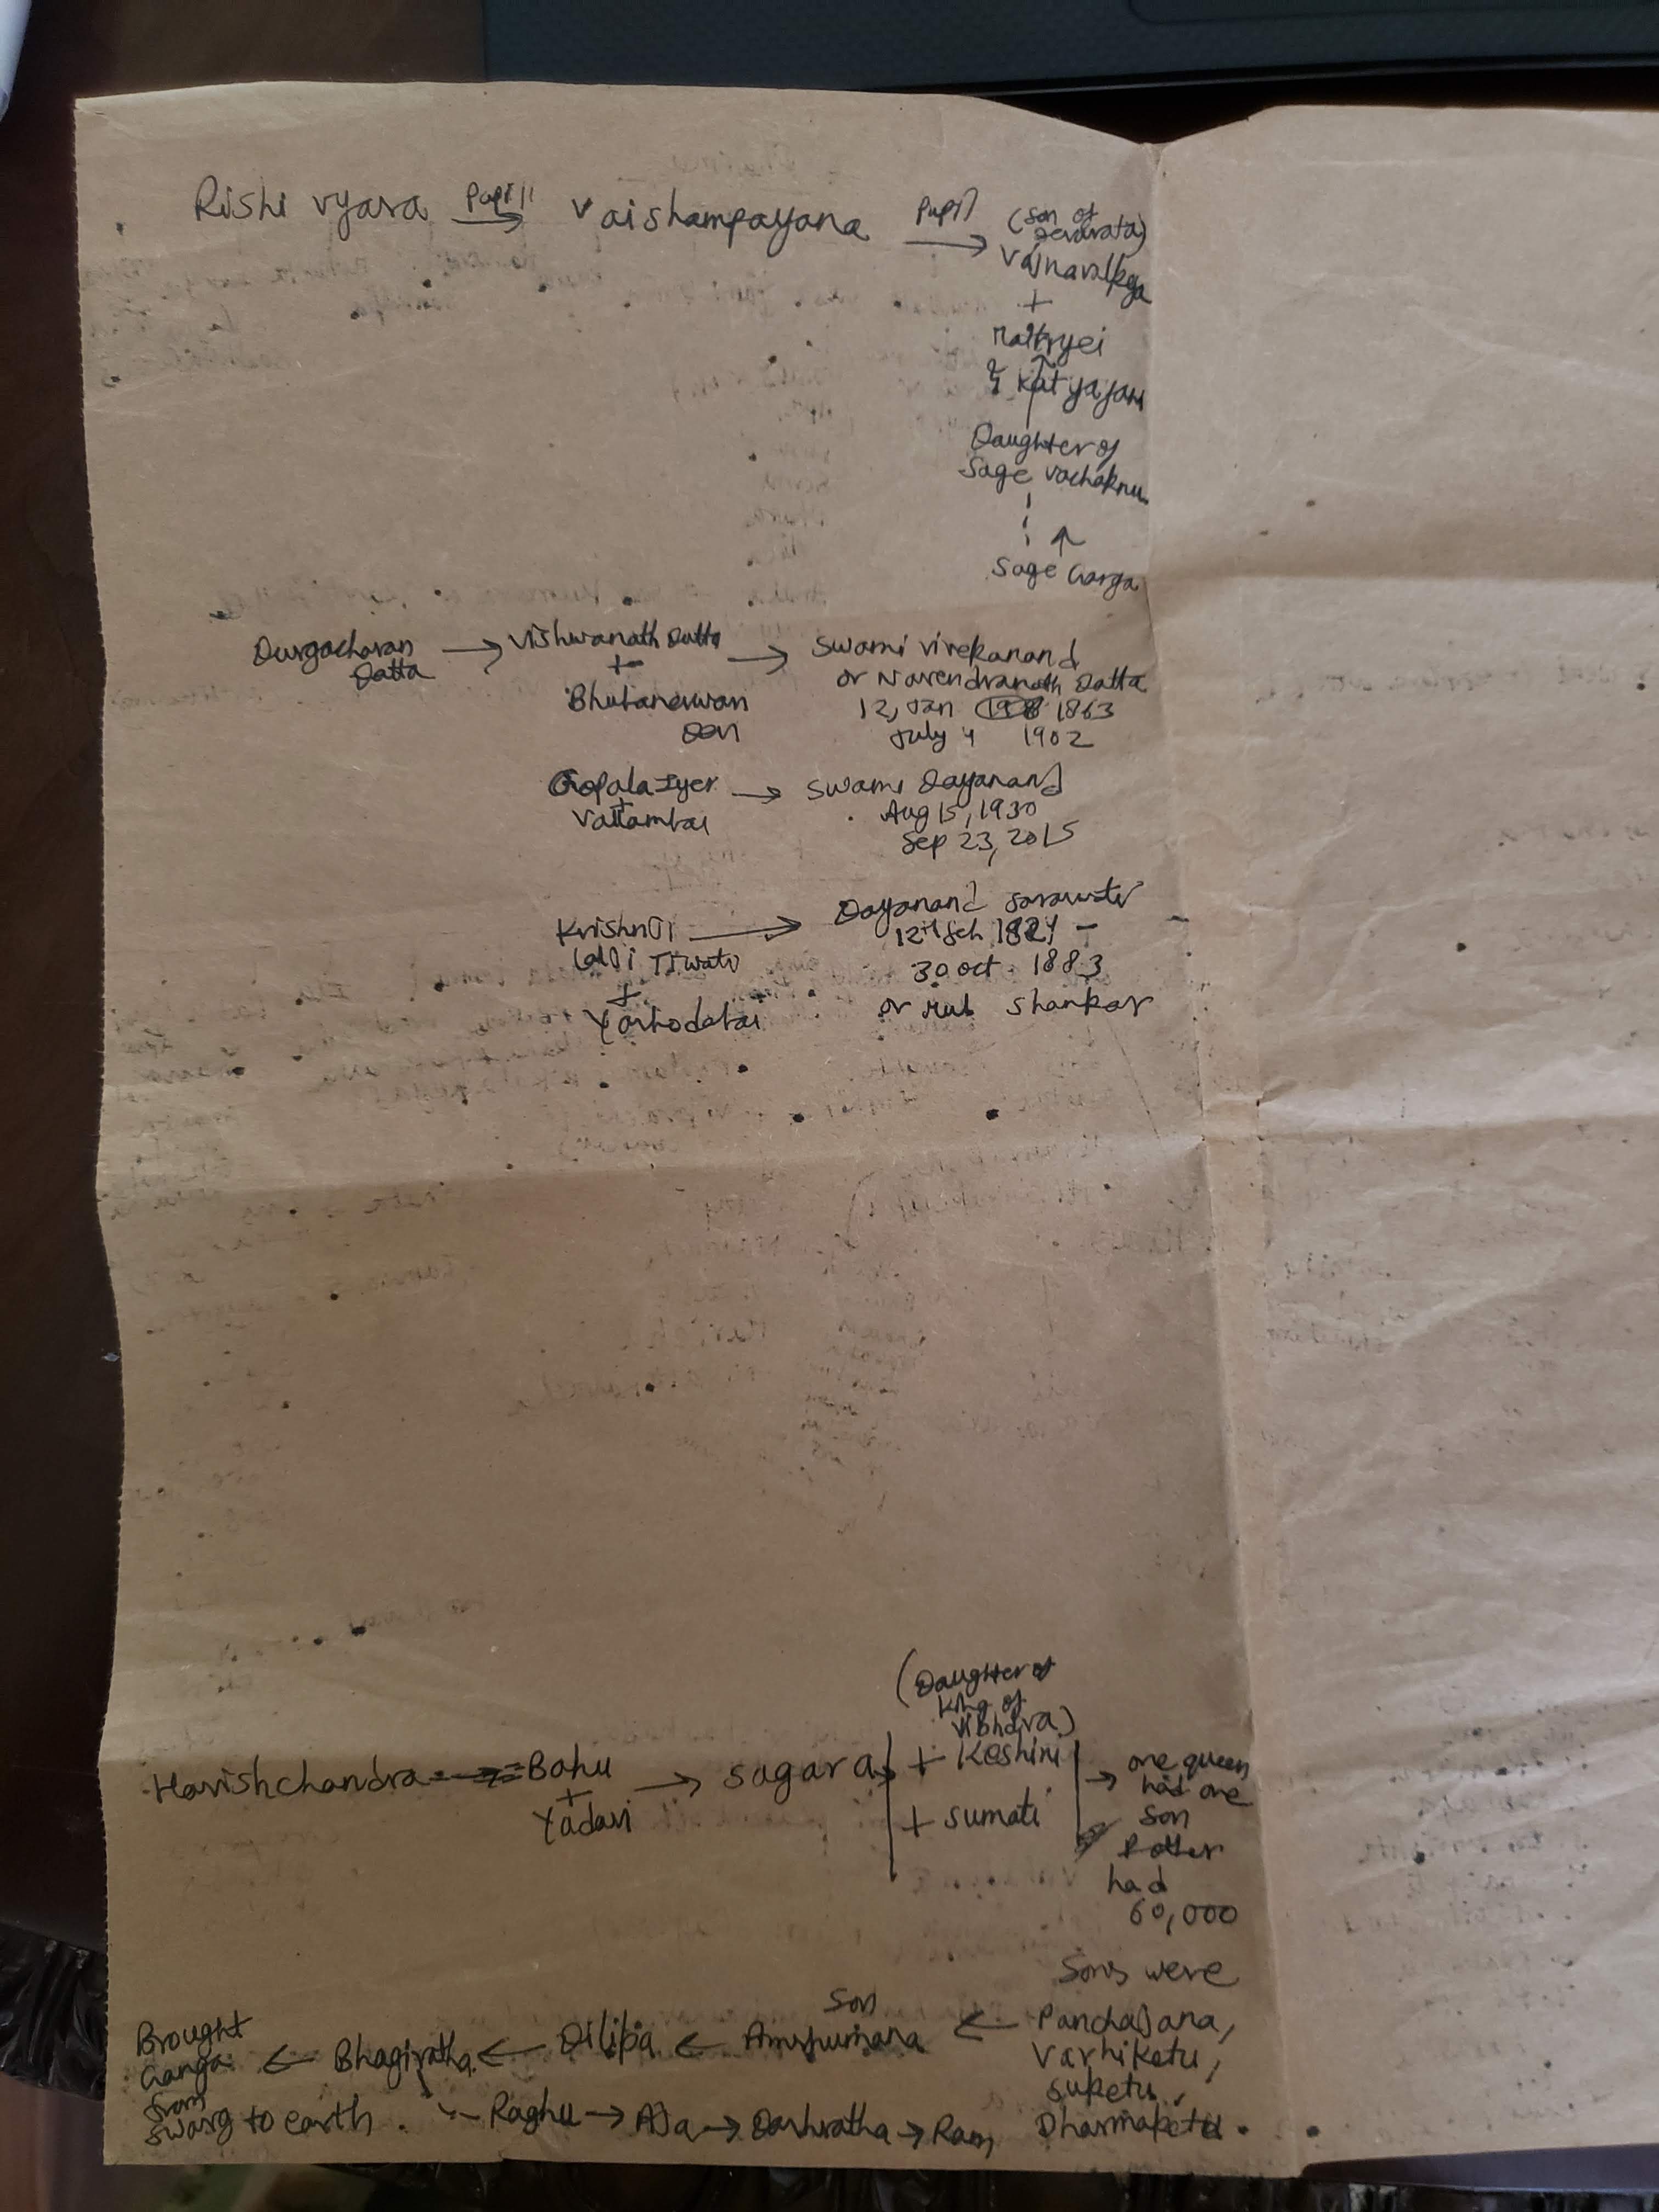 Rishi vyasa Pupil → Vaishampayana Pupil → (son of
Devarata)
Yajnavalkya
+
Maitryei
& Katyayani
Daughter of
Sage Vachaknu
↑
Sage Garga
Durgacharan → Vishwanath Datta → Swami Vivekanand
Datta + or Narendranath Datta
Bhubaneswari 12, Jan 1863
Devi July 4 1902
Gopala Iyer → Swami Dayanand
+ Aug 15, 1930
Vallambai Sep 23, 2015
Krishnji → Dayanand Saraswati
Lalji Tiwari 12th Feb 1824 -
+ 30 Oct 1883
Yashodabai or Mul Shankar
(Daughter of
King of
Vibharva)
Harishchandra Bahu → Sagara + Keshini → one queen
+ had one
Yadavi + Sumati son
& other
had
60,000
Sons were
Panchajana,
Varhiketu,
Suketu,
Dharmaketu.
Son
Brought ← Bhagiratha ← Dilipa ← Amshumana ←
Ganga
from
Swarg to earth. Raghu → Aja → Dashratha → Ram